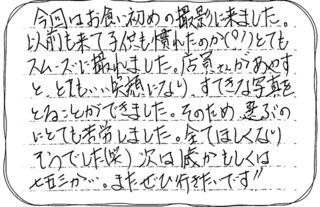 今回はお食い初めの撮影に来ました。
以前も来て子供も慣れたのか(?!)とても
スムーズに撮れました。店員さんがあやす
と、とても…笑顔になり、すてきな写真を
とることができました。そのため選ぶの
にとても苦労しました。全てほしくなり
そうでした(笑) 次は1歳かもしくは
七五三か…。またぜひ行きたいです!!